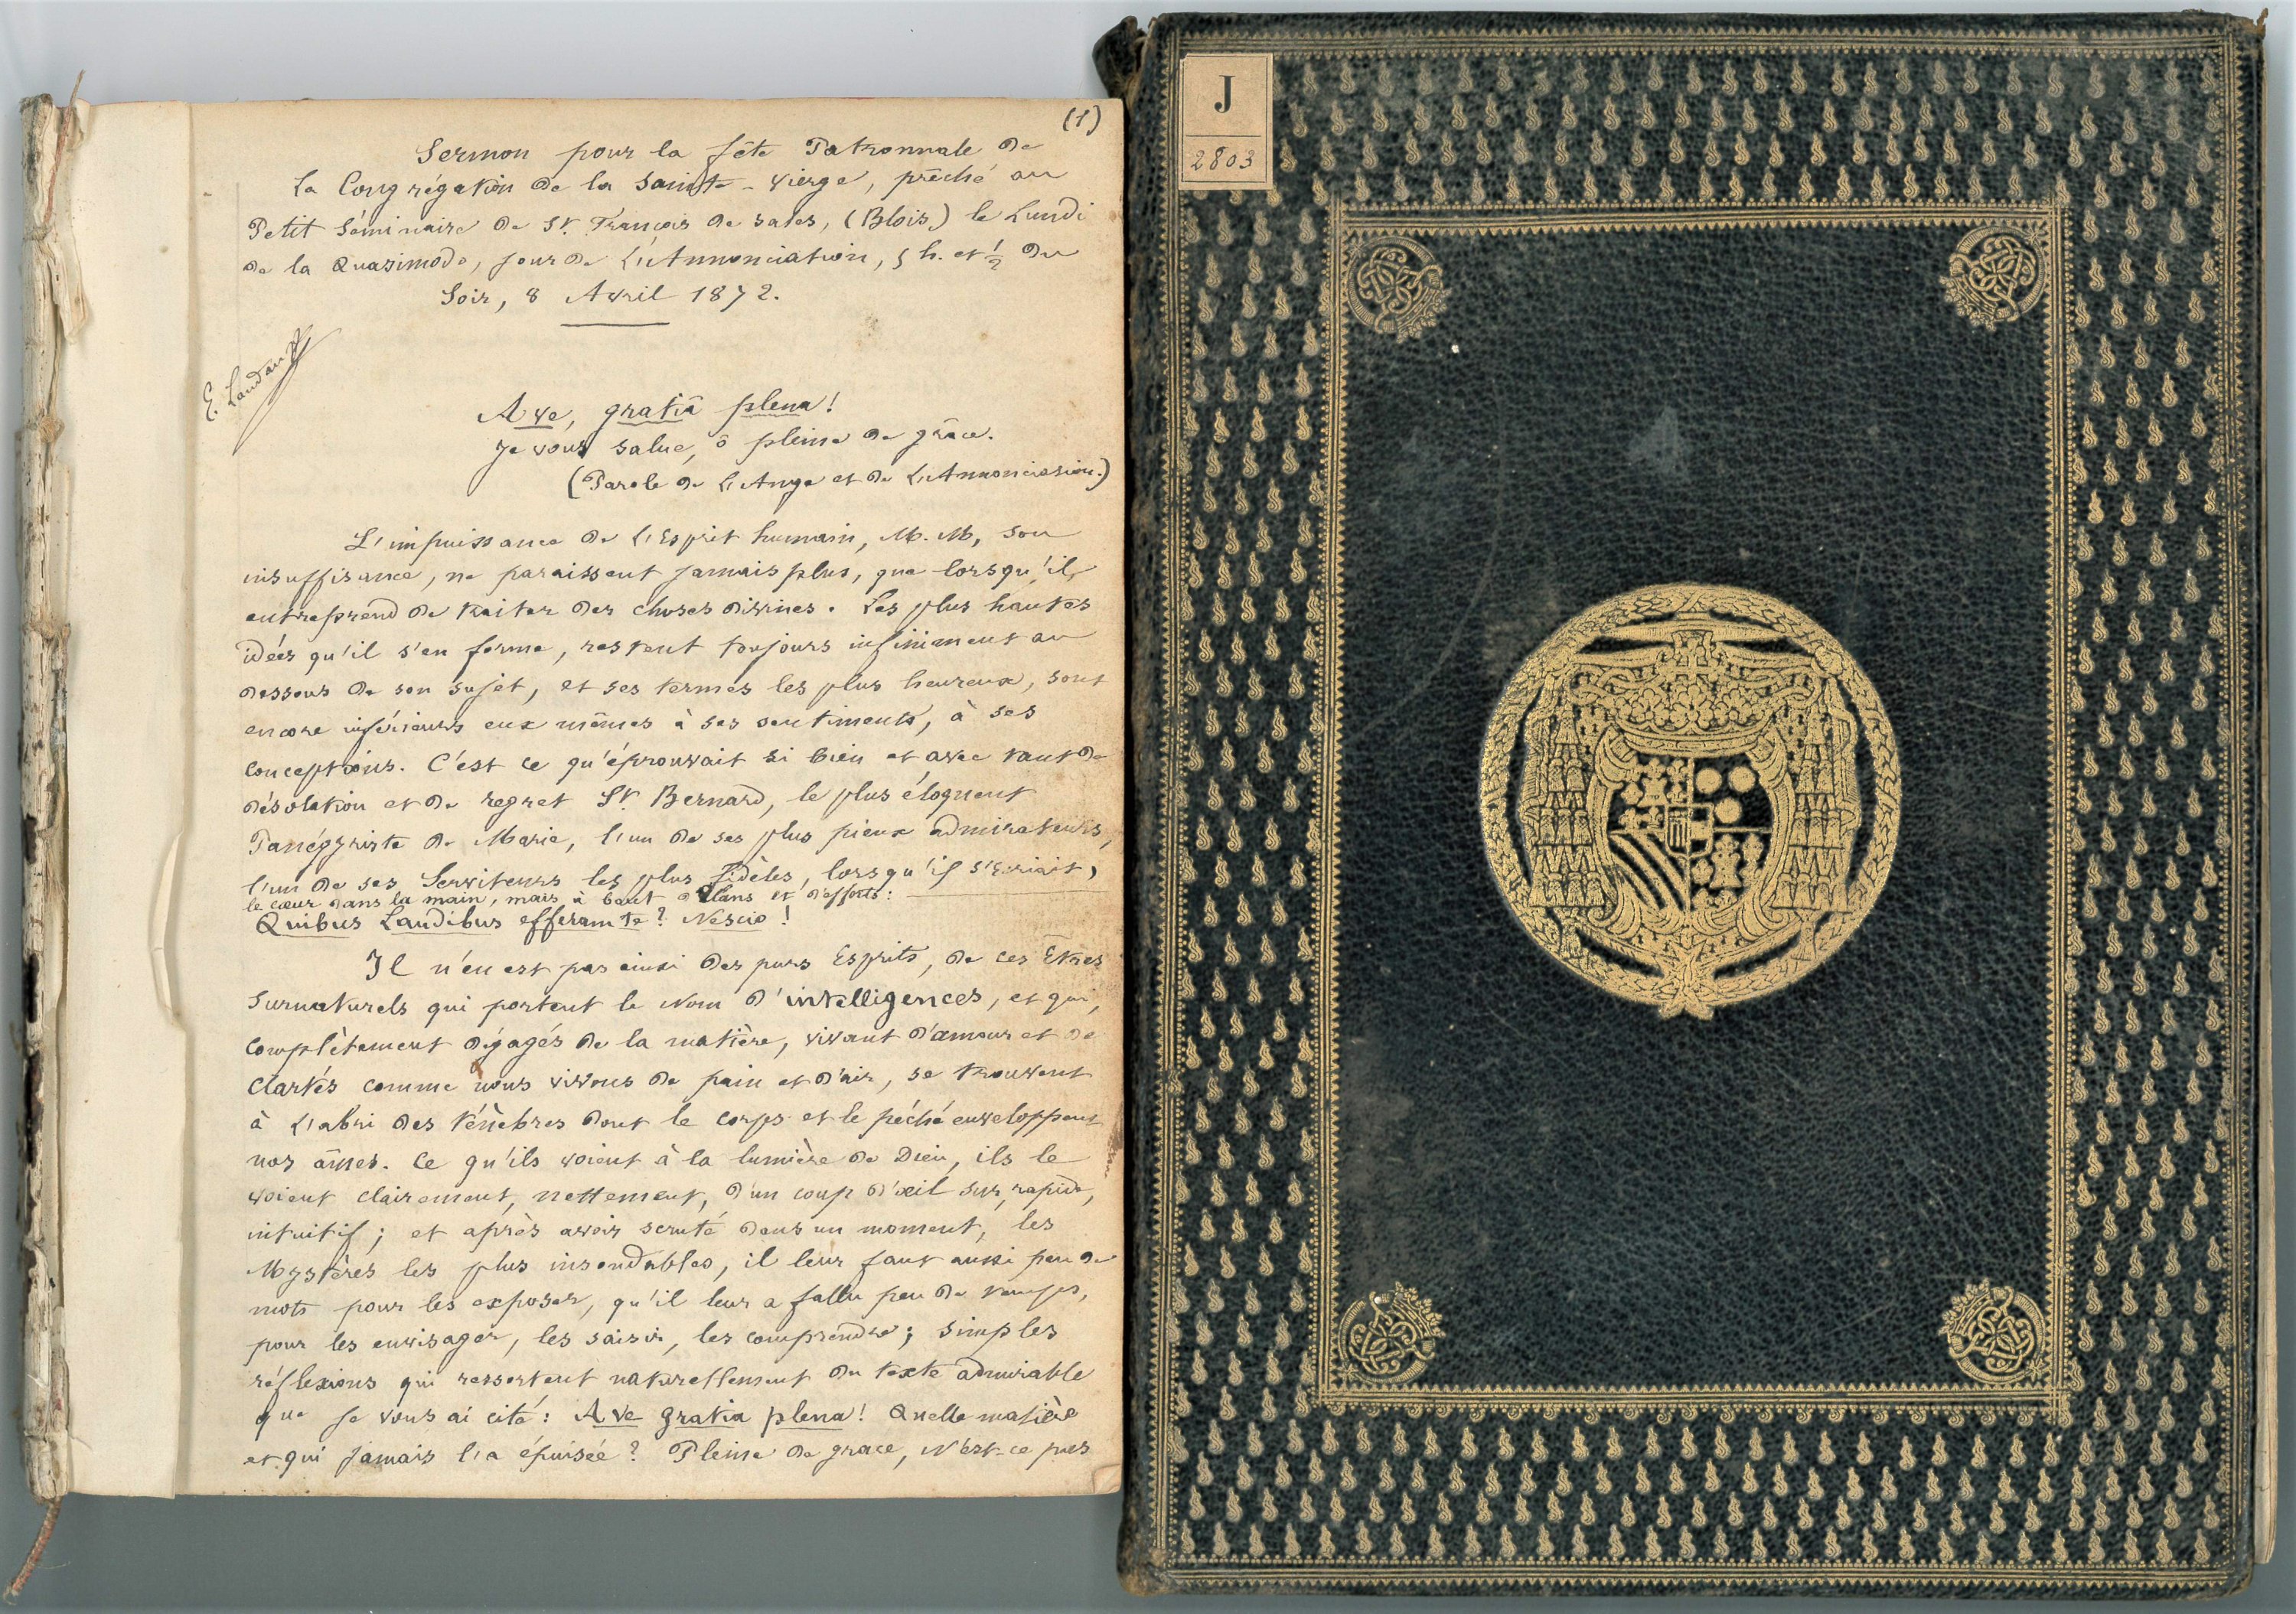 (1)
Sermon pour la fête Patronnale de
La Congrégation de la Sainte-Vierge, prêché au
Petit Séminaire de St. François de Sales, (Blois,) le Lundi
de la Quasimodo, jour de L'Annonciation, 5 h. et ½ du
Soir, 8 Avril 1872.
E. Landau
Ave, gratiâ plena!
Je vous salue, ô pleine de grâce.
(Parole de L'Ange et de L'Annonciation.)
L'impuissance de L'Esprit humain, M. M, son
insuffisance, ne paraissent jamais plus, que lorsqu'il
entreprend de traiter des choses divines. Les plus hautes
idées qu'il s'en forme, restent toujours infiniment au
dessous de son sujet, et ses termes les plus heureux, sont
encore inférieurs eux mêmes à ses sentiments, à ses
conceptions. C'est ce qu'éprouvait si bien et avec tant de
désolation et de regret St. Bernard, le plus éloquent
Panégyriste de Marie, l'un de ses plus pieux admirateurs,
l'un de ses Serviteurs les plus fidèles, lorsqu'il s'Ecriait,
le cœur dans la main, mais à bout d'élans et d'efforts:
Quibus Laudibus efferam te? Nescio!
Il n'en est pas ainsi des purs Esprits, de ces Etres
Surnaturels qui portent le Nom d'intelligences, et qui,
complètement dégagés de la matière, vivant d'amour et de
clartés comme nous vivons de pain et d'air, se trouvent
à L'abri des ténèbres dont le corps et le péché enveloppent
nos âmes. Ce qu'ils voient à la lumière de Dieu, ils le
voient clairement, nettement, d'un coup d'œil sur, rapide,
intuitif; et après avoir scruté dans un moment, les
Mystères les plus insondables, il leur faut aussi peu de
mots pour les exposer, qu'il leur a fallu peu de temps,
pour les envisager, les saisir, les comprendre; simples
réflexions qui ressortent naturellement du texte admirable
que je vous ai cité: Ave gratia plena! Quelle matière
et qui jamais l'a épuisée? Pleine de grace, N'est-ce pas
J
2803